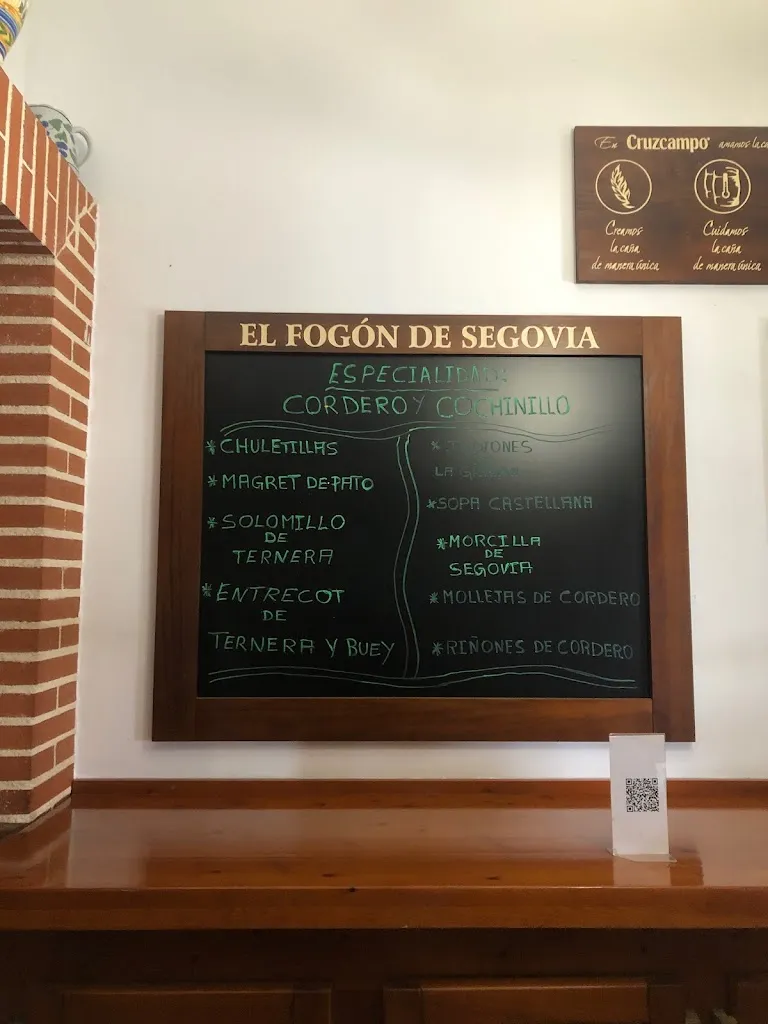 En Cruzcampo amamos la ca
Creamos
la caña
de manera única
Cuidamos
la caña
de manera única
EL FOGÓN DE SEGOVIA
ESPECIALIDAD:
CORDERO Y COCHINILLO
*CHULETILLAS
*MAGRET DE PATO
*SOLOMILLO
DE
TERNERA
*ENTRECOT
DE
TERNERA Y BUEY
LA
*SOPA CASTELLANA
*MORCILLA
DE
SEGOVIA
*MOLLEJAS DE CORDERO
*RIÑONES DE CORDERO